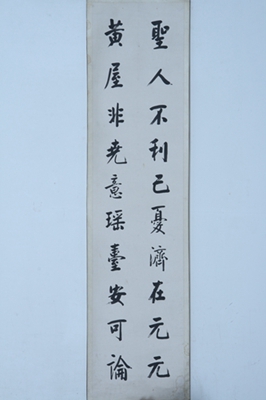 聖人不利己憂濟在元元
黃屋非堯意瑶臺安可論